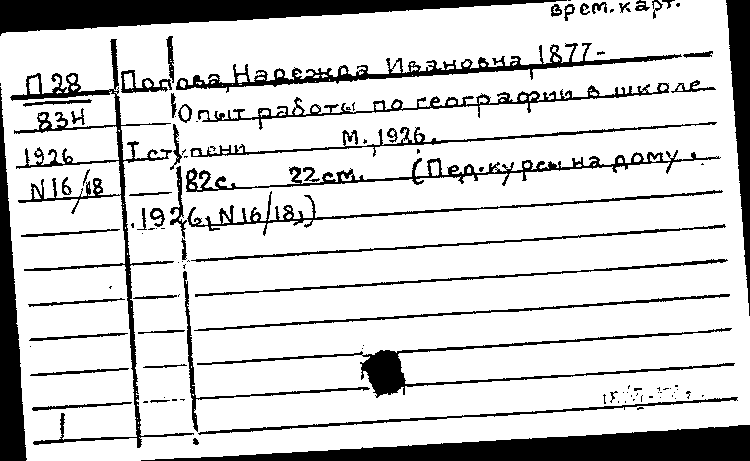 врем. карт.
П 28 Попова, Надежда Ивановна, 1877-
83Н Опыт работы по географии в школе
1926 I ступени М., 1926.
N16/18 82с. 22см. (Пед. курсы на дому.
1926, N16/18,)
1